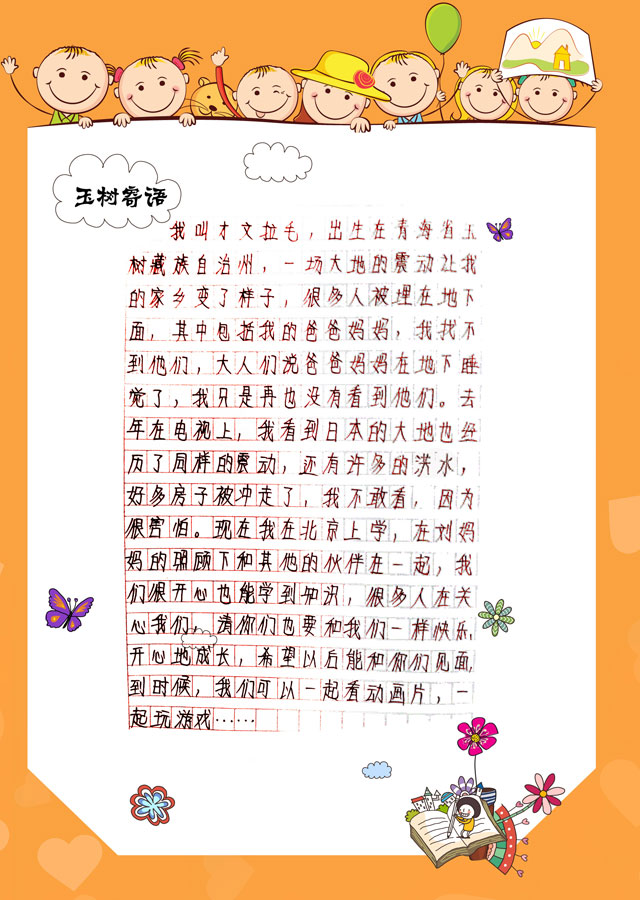 玉树寄语
我叫才文拉毛，出生在青海省玉
树藏族自治州，一场大地的震动让我
的家乡变了样子，很多人被埋在地下
面，其中包括我的爸爸妈妈，我找不
到他们，大人们说爸爸妈妈在地下睡
觉了，我只是再也没有看到他们。去
年在电视上，我看到日本的大地也经
历了同样的震动，还有许多的洪水，
好多房子被冲走了，我不敢看，因为
很害怕。现在我在北京上学，在刘妈
妈的照顾下和其他的伙伴在一起，我
们很开心也能学到知识，很多人在关
心我们，请你们也要和我们一样快乐，
开心地成长，希望以后能和你们见面，
到时候，我们可以一起看动画片，一
起玩游戏……